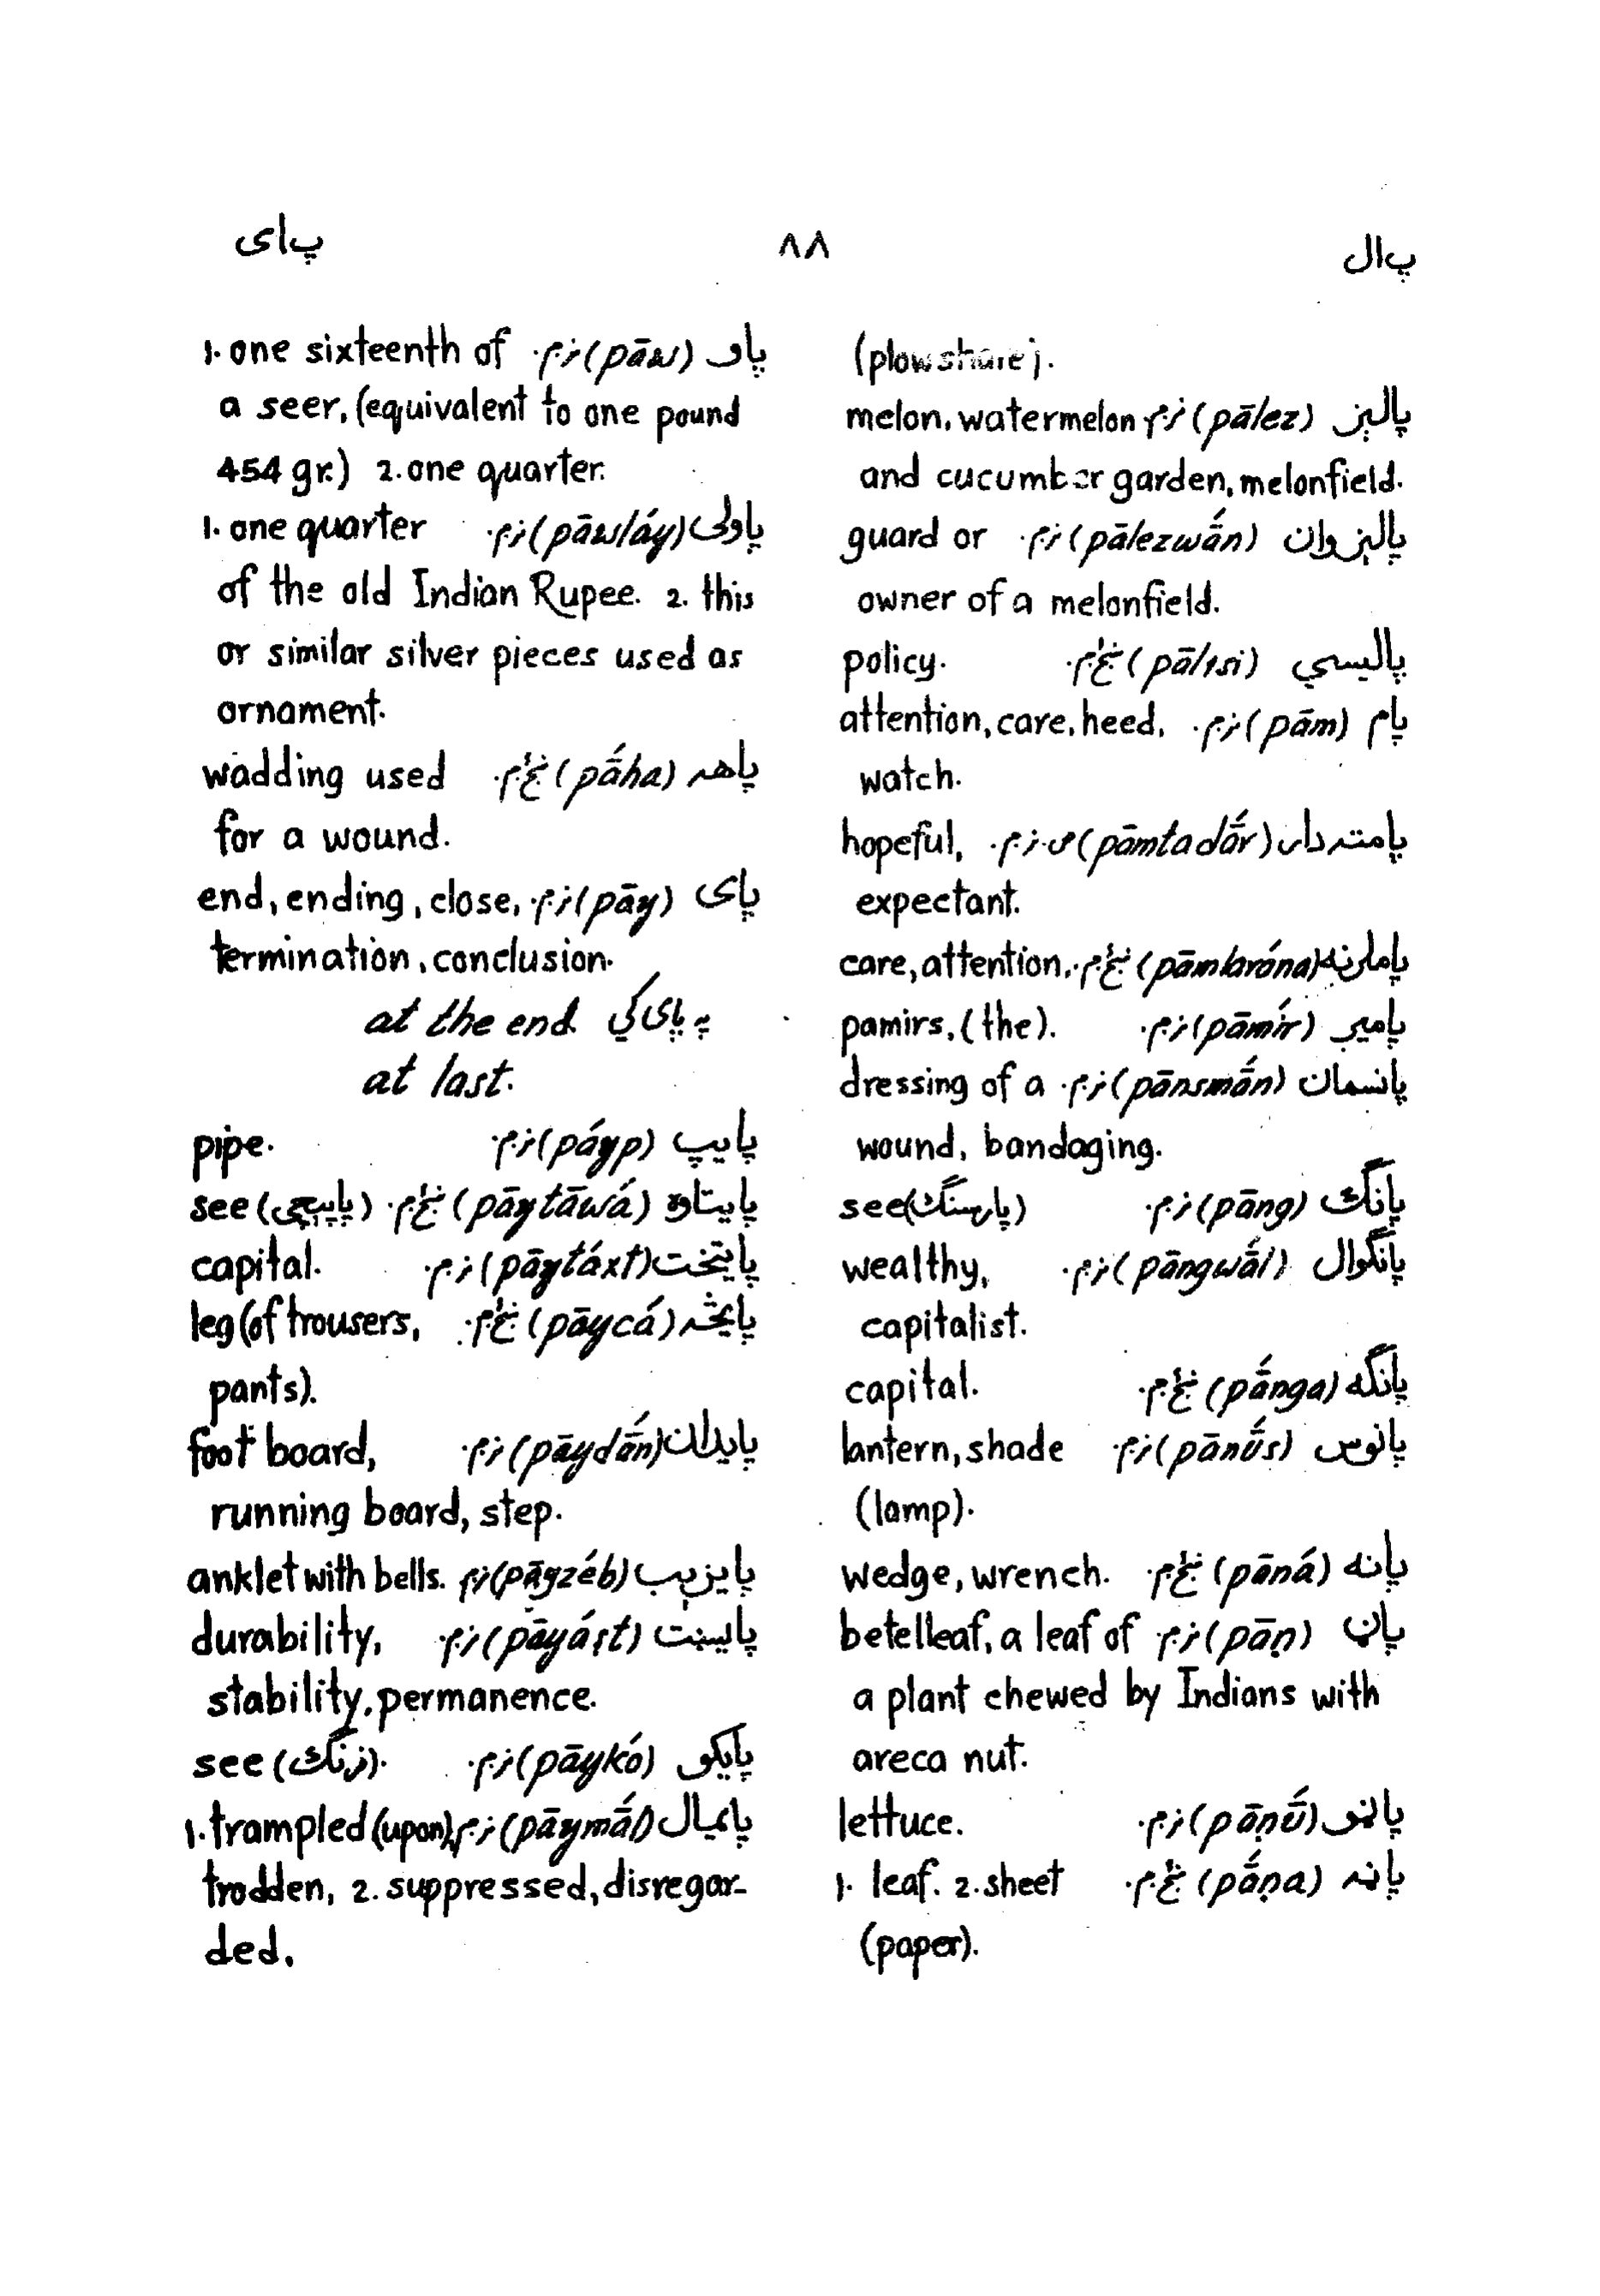 پ‍ال ۸۸ پ‍ای
(plowshare).
پالېز (pālez) melon, watermelon
and cucumber garden, melonfield.
پالېزوان (pālezwā́n) guard or
owner of a melonfield.
پالیسي (pālısi) policy.
پام (pām) attention, care, heed,
watch.
پامته‌دار (pāmtadā́r) hopeful,
expectant.
care, attention,
پامیر (pāmír) pamirs, (the).
پانسمان (pānsmā́n) dressing of a
wound, bandaging.
پانګ (pāng) see (پارسنګ)
پانګوال (pāngwā́l) wealthy,
capitalist.
پانګه (pā́nga) capital.
پانوس (pānū́s) lantern, shade
(lamp).
پانه (pāná) wedge, wrench.
پاڼ (pāṇ) betelleaf, a leaf of
a plant chewed by Indians with
areca nut.
پاڼو (pāṇū́) lettuce.
پاڼه (pā́ṇa) 1. leaf. 2. sheet
(paper).
پاو (pāw) 1. one sixteenth of
a seer, (equivalent to one pound
454 gr.) 2. one quarter.
پاولی (pāwláy) 1. one quarter
of the old Indian Rupee. 2. this
or similar silver pieces used as
ornament.
پاهه (pā́ha) wadding used
for a wound.
پای (pāy) end, ending, close,
termination, conclusion.
په پای کې at the end
at last.
پایپ (páyp) pipe.
پایتاوه (pāytāwá) see (پایپیچی)
پایتخت (pāytáxt) capital.
پایڅه (pāycá) leg (of trousers,
pants).
پایدان (pāydā́n) foot board,
running board, step.
پایزېب (pāyzéb) anklet with bells.
پایښت (pāyáṣt) durability,
stability, permanence.
پایکو (pāykó) see (زنګ).
پایمال (pāymā́l) 1. trampled (upon),
trodden, 2. suppressed, disregar-
ded.